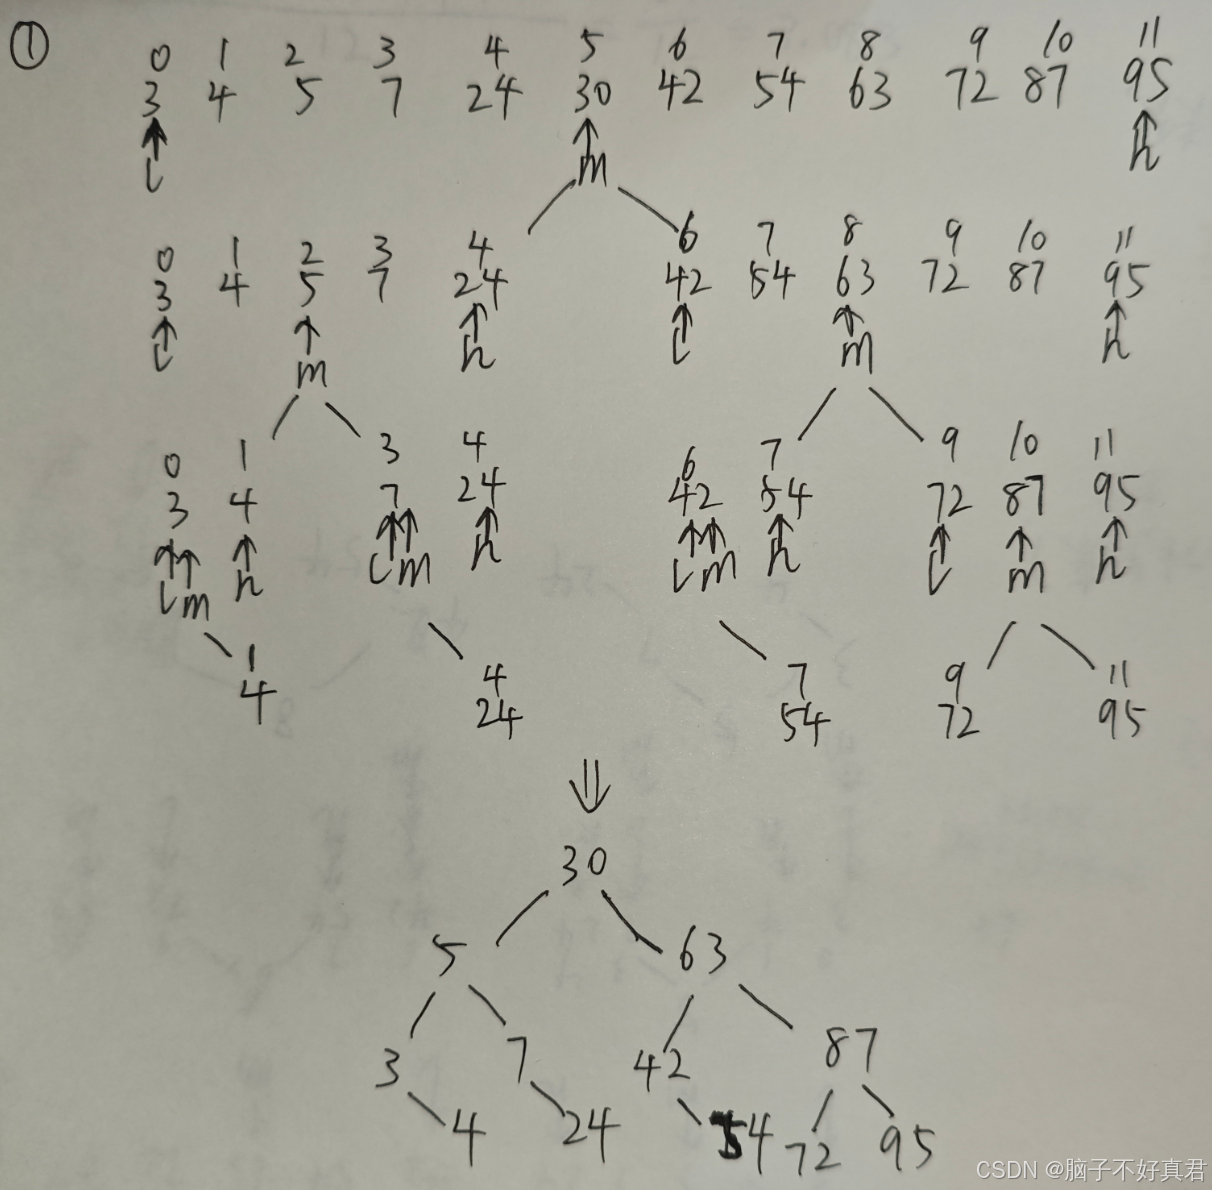 ①
0 1 2 3 4 5 6 7 8 9 10 11
3 4 5 7 24 30 42 54 63 72 87 95
l m h
0 1 2 3 4 6 7 8 9 10 11
3 4 5 7 24 42 54 63 72 87 95
l m h l m h
0 1 3 4 6 7 9 10 11
3 4 7 24 42 54 72 87 95
l m h l m h l m h l m h
1 4 7 9 11
4 24 54 72 95
⇓
30
5 63
3 7 42 87
4 24 54 72 95
CSDN @脑子不好真君